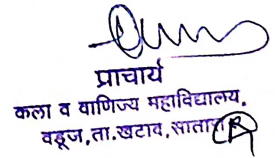 प्राचार्य
कला व वाणिज्य महाविद्यालय,
वडूज,ता.खटाव,सातारा